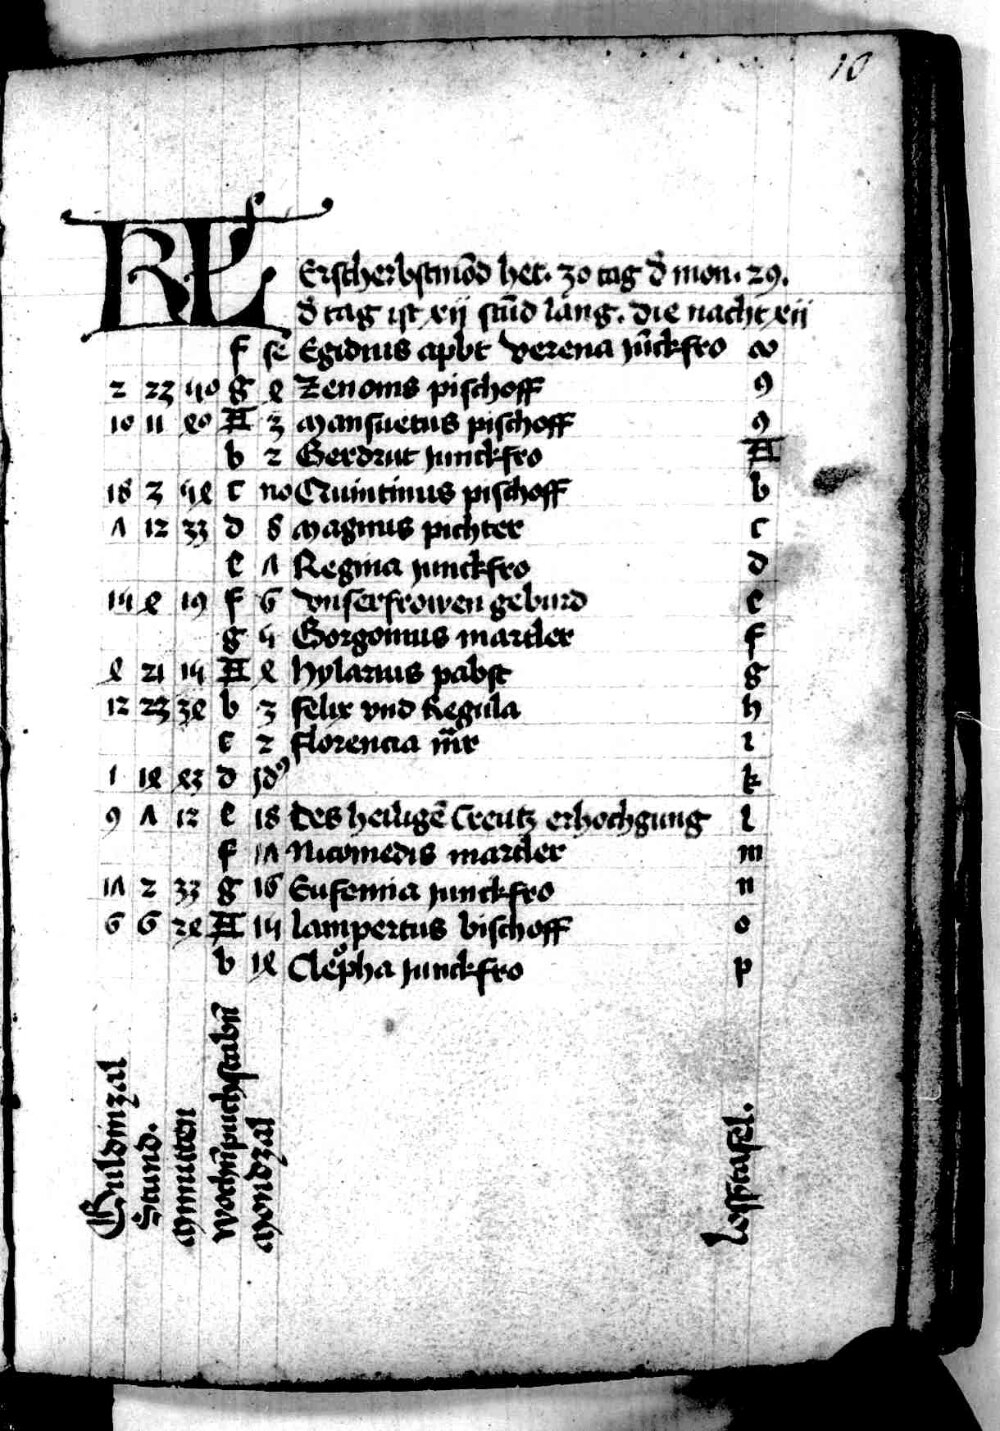 10
KL
Erſcherbſtmōd het. 30 tag d̄ mon. 29.
d̄ tag iſt xij ſtūd lang. die nacht xij
f ſe Egidius apbt Verena jūckfro
2 23 50 g 4 Zenonis piſchoff 9
10 11 40 A 3 Manſuetus piſchoff 9
b 2 Gerdrut junckfro A
18 3 54 c no Quintinus piſchoff b
7 12 33 d 8 Magnus pichter c
e 7 Regina junckfro d
15 4 19 f 6 Vnſerfrowen geburd e
g 5 Gorgonius martler f
4 21 15 A 4 hylarius pabſt g
12 23 34 b 3 felix vnd Regula h
c 2 florencia m̄r i
1 14 43 d jdꝰ k
9 7 12 e 18 Des heiligē Creutz erhochgung l
f 17 Nicomedis martler m
17 2 33 g 16 Eufemia junckfro n
6 6 24 A 15 lampertus biſchoff o
b 14 Cleopha junckfro p
Guldinzal
Stund.
Mynutten
wochn̄puchſtabn̄
Mondzal
loſſtafel.